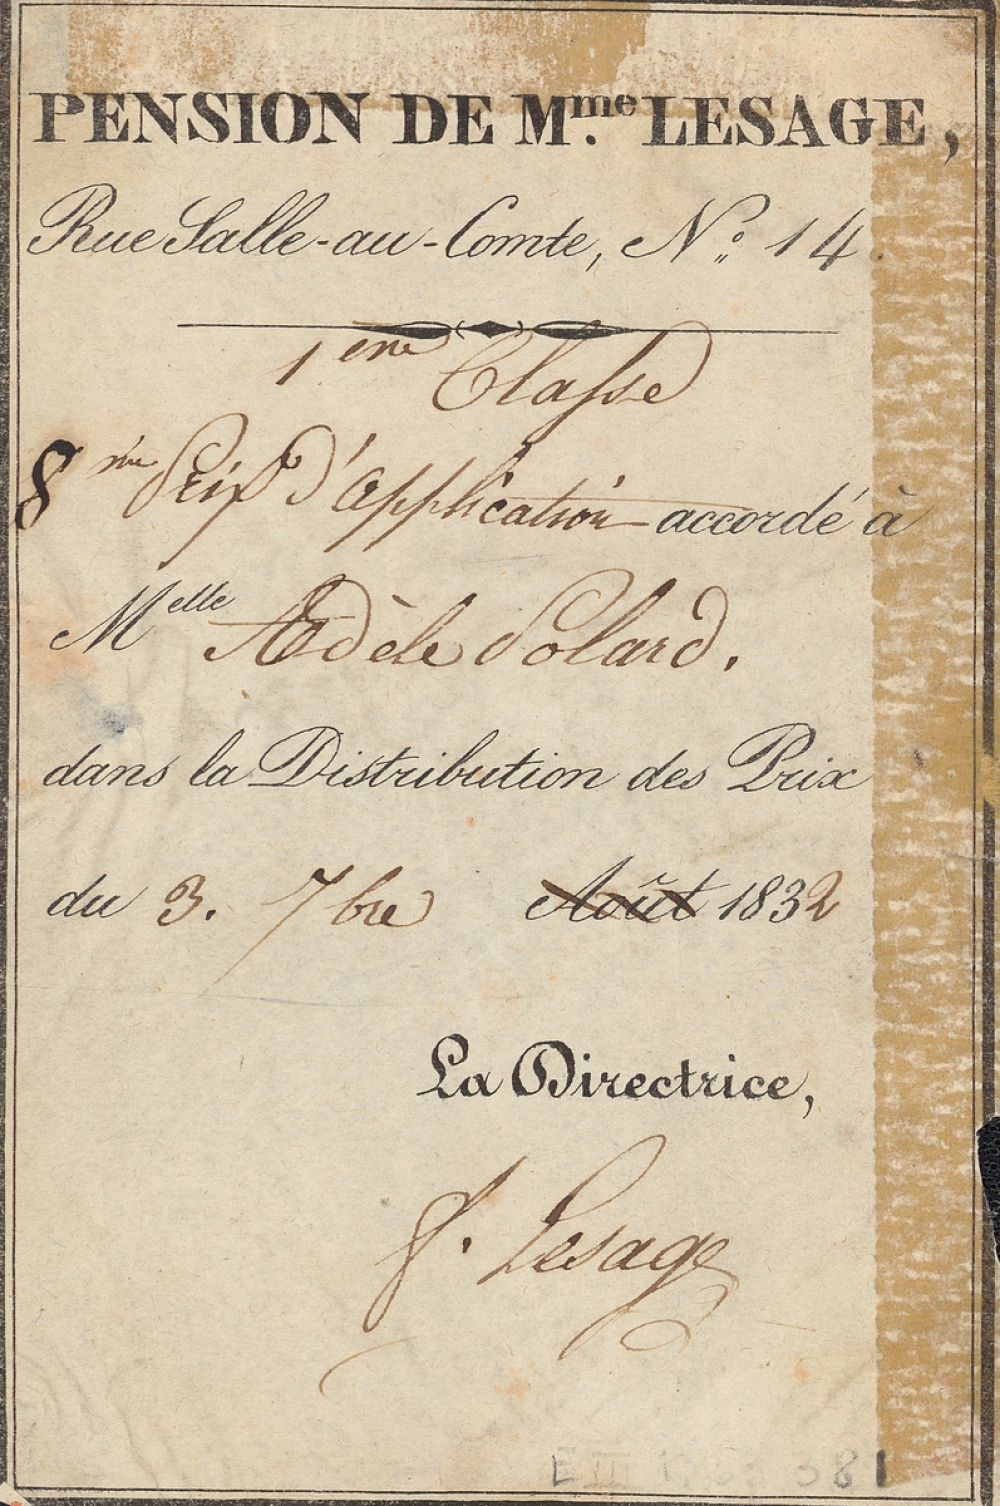 PENSION DE Mme. LESAGE,
Rue Salle-au-Comte, No. 14.
1ere Classe
8me Prix d'application accordé à
Melle Adèle Polard.
dans la Distribution des Prix
du 3. 7bre Août 1832
La Directrice,
f. Lesage